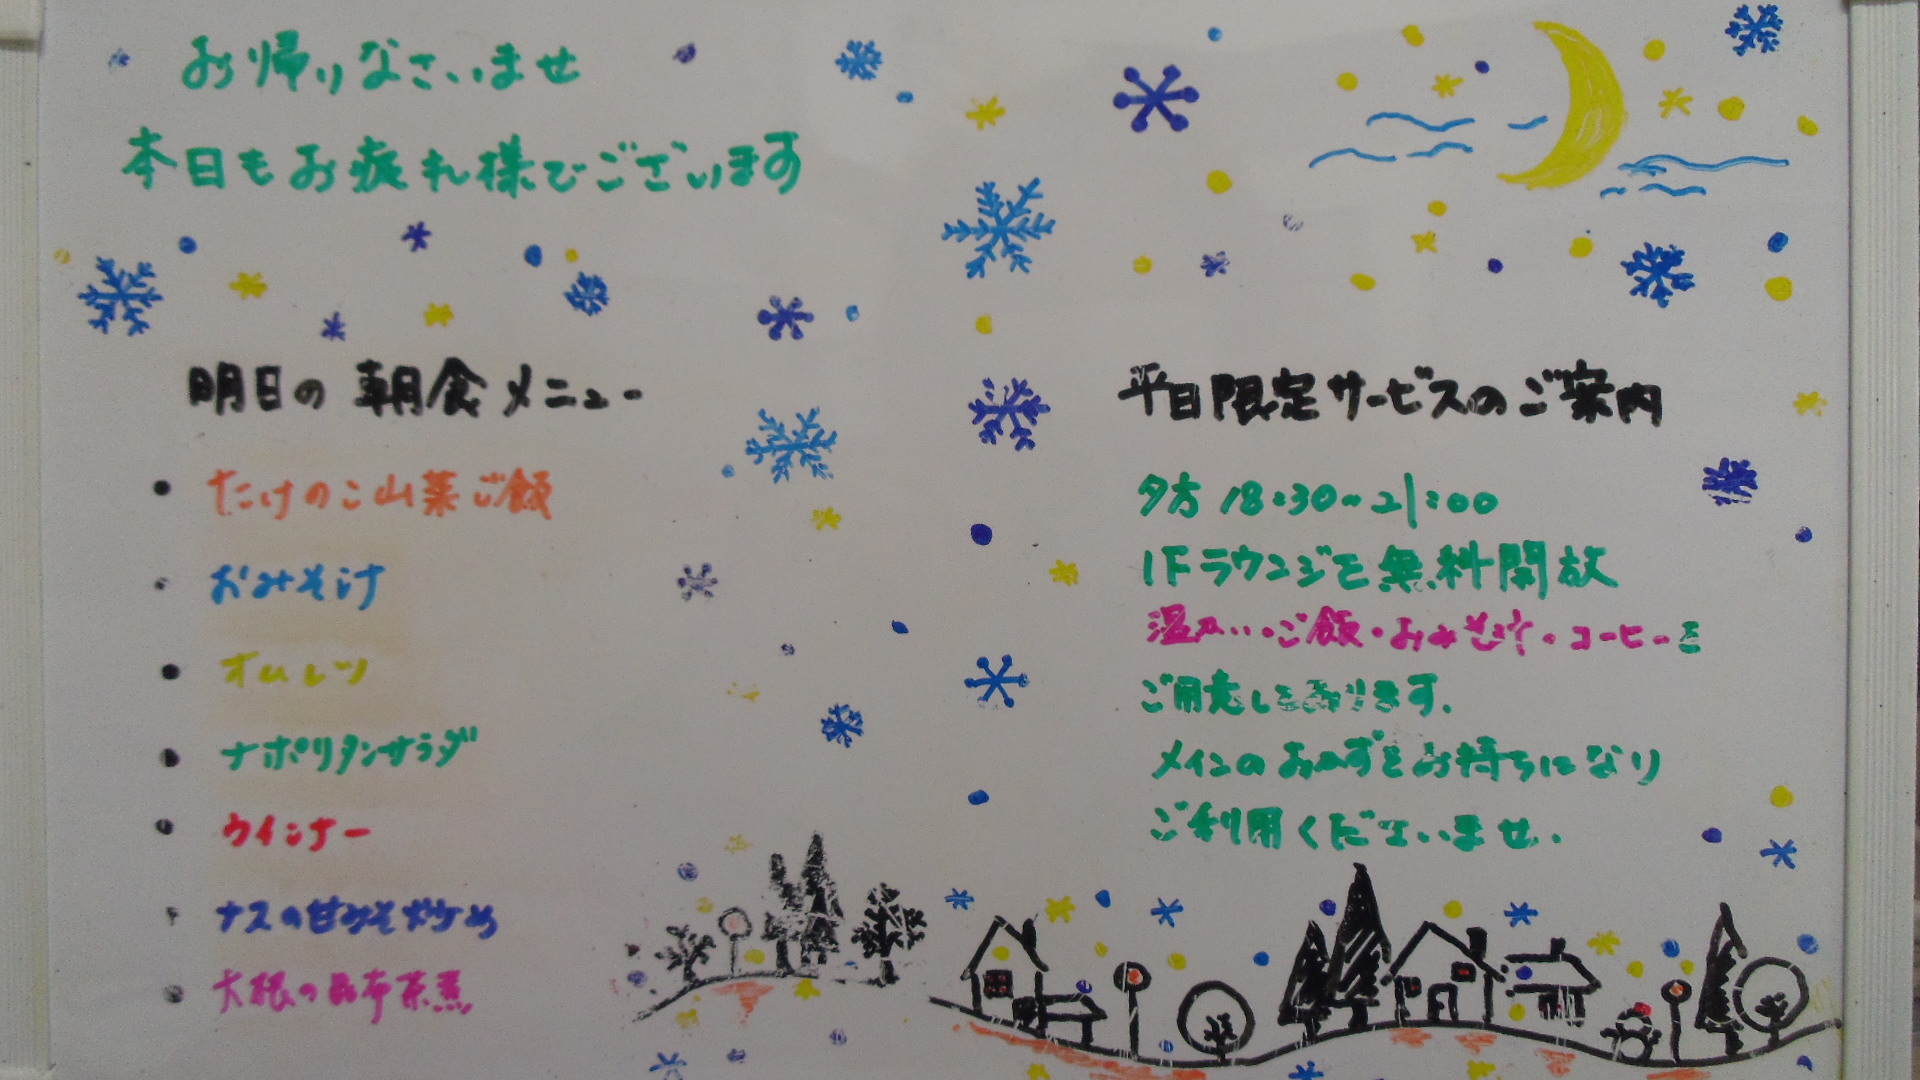 お帰りなさいませ
本日もお疲れ様でございます
明日の朝食メニュー
・たけのこ山菜ご飯
・おみそ汁
・オムレツ
・ナポリタンサラダ
・ウインナー
・ナスの甘みそ炒め
・大根の昆布茶煮
平日限定サービスのご案内
夕方 18:30~21:00
1Fラウンジを無料開放
温かい・ご飯・おみそ汁・コーヒーを
ご用意しております.
メインのおかずをお持ちになり
ご利用くださいませ.